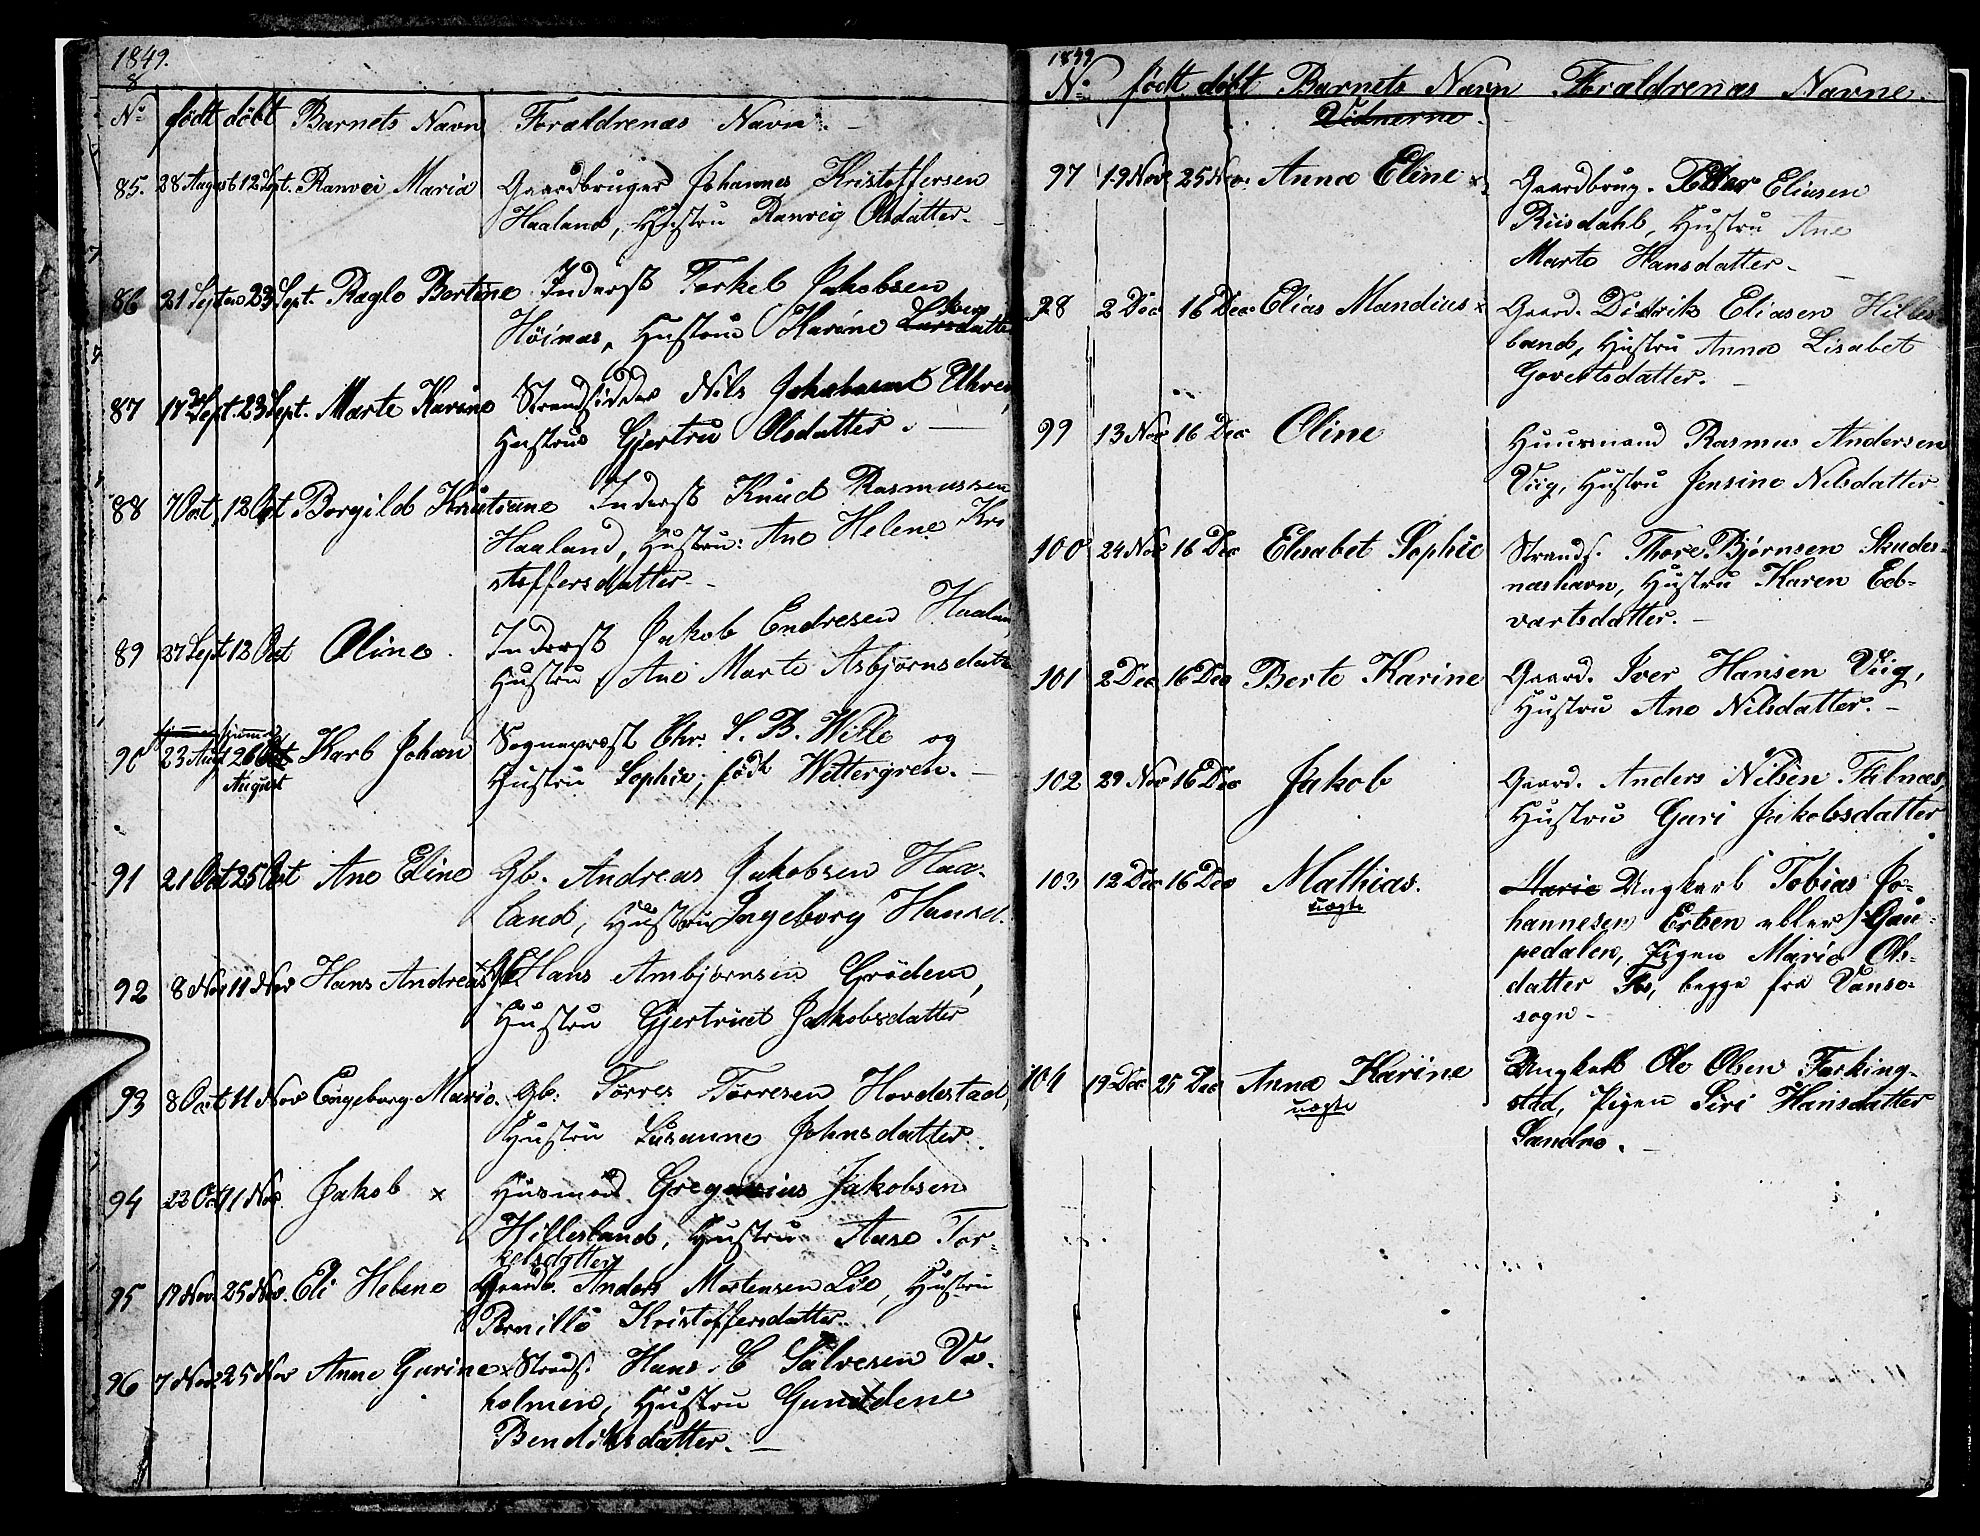 1849.
8
No født døbt Barnets Navn Forældrenas Navn. —
85. 28 August 12 Sept. Ranvei Maria Gaardbruger Johannes Kristoffersen
Haaland, Hustru Ranveig Olsdatter. —
86 21 Septem 23 Sept. Raglo Bertine Inderst Torkel Jakobsen
Höinæs, Hustru Karine Larsdatter
87 17 Sept. 23 Sept. Marte Karine Strandsidder Nils Jakobsen Uhre,
Hustrue Gjertru Olsdatter. —
88 7 Oct, 12 Oct Borgild Kristiane Inderst Knud Rasmussen
Haaland, Hustru: Ane Helene Kri
stoffersdatter. -
89 27 Sept 12 Oct Oline. Inderst Jakob Endresen Haaland,
Hustru Ane Marte Asbjørnsdatt
90 23 Aug 26 Oct Karl Johan Sognepræst Chr. L. B. Wille og
August Hustru Sophie, født Wettergren. —
91 21 Oct 25 Oct Ane Eline Gb. Andreas Jakobsen Haa-
land, Hustru Ingeborg Hansd.
92 8 Nov 11 Nov Hans Andreas x Gb. Hans Ambjørnsen Grödem,
Hustru Gjertrud Jakobsdatter
93 8 Oct 11 Nov Engeborg Marie. Gb: Tørres Tørresen Hovdestad,
Hustru Susanne Johnsdatter.
94 22 Oct 11 Nov. Jakob x Husmand Gregorius Jakobsen
Hillesland, Hustru Aase Tor-
kelsdatter
95 17 Nov. 25 Nov. Eli Helene Gaardb. Anders Mortensen Lie, Hustru
Pernille Kristoffersdatter.
96 7 Nov. 25 Nov Anne Gurine x Strands. Hans C Salvesen Va-
holmen, Hustru Gunildene
Bendiksdatter. —
1849
No født døbt Barnets Navn Foraldrenas Navne.
Vidnerne.
97 19 Nov 25 Nov. Anna Eline x Gaardbrug. Peder Eliasen
Riisdahl, Hustru Ane
Marte Hansdatter. —
98 2 Dec 16 Dec Elias Mandius x Gaard. Didrik Eliasen Hilles
land, Hustru Anna Lisabet
Govertsdatter. —
99 13 Nov 16 Dec Oline Huusmand Rasmus Andersen
Viig, Hustru Jensine Nelsdatter
100 24 Nov 16 Dec Elisabet Sophie Strands. Thore Bjørnsen Skudes-
næshavn, Hustru Karen Ed-
vartsdatter. —
101 2 Dec 16 Dec Berte Karine Gaard. Iver Hansen Viig,
Hustru Ane Nilsdatter. —
102 29 Nov 16 Dec Jakob Gaard. Anders Nilsen Falnæs,
Hustru Guri Jakobsdatter
103 12 Dec 16 Dec Mathias. Marie Ungkarl Tobias Jo-
uægte hannesen Ersen eller Gau-
pedalen, Pigen Marie Ols-
datter Fos, begge fra Vanse-
sogn —
104 19 Dec 25 Dec Anna Karine Ungkarl Ole Olsen Ferking-
uægte stad, Pigen Siri Hansdatter
Sandne. —